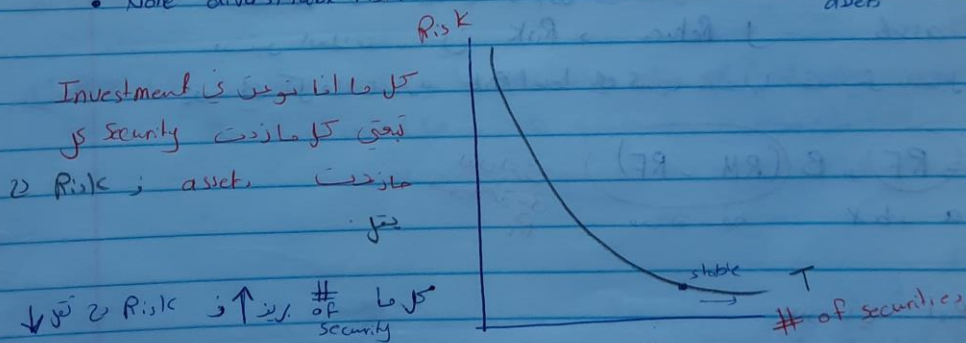 Risk
كل ما انا نوعت في Investment
تبعتي كل مازدت Security في
مازدت asset, ف Risk ال
يقل
كل ما # of security يزيد ↑ ف Risk ال تقل ↓
stable
T
# of securities